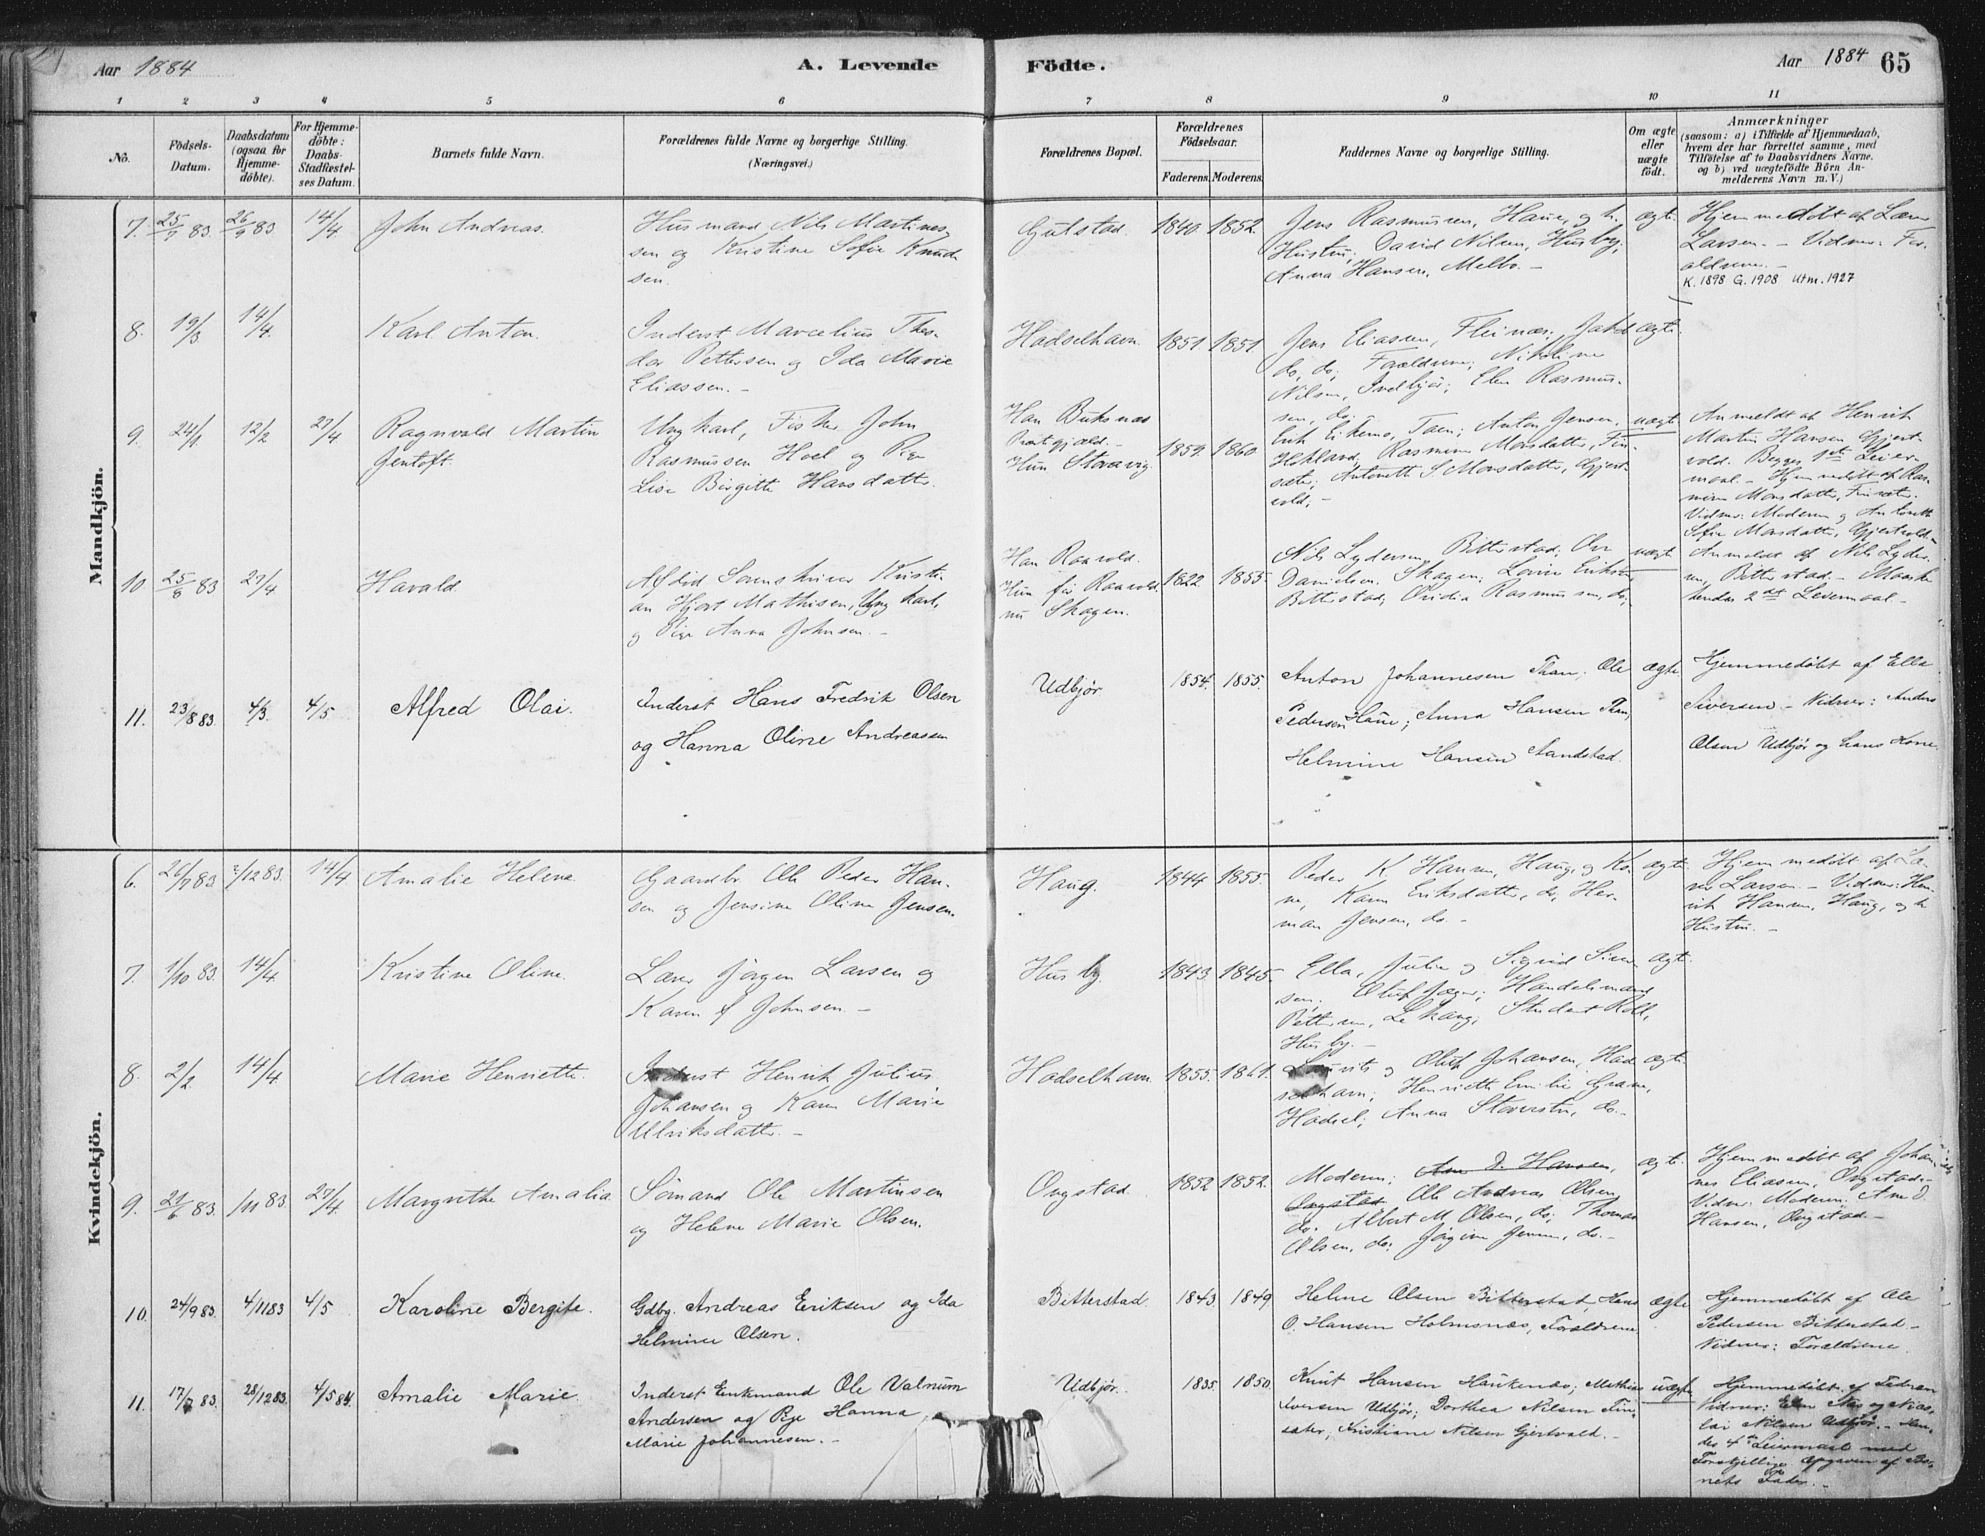 Aar 1884
A. Levende
Födte.
Aar 1884
65
1 2 3 4 5 6 7 8 9 10 11
No.
Födsels-
Datum.
Daabsdatum
(ogsaa for
Hjemme-
döbte).
For Hjemme-
döbte:
Daabs-
Stadfæstel-
ses Datum.
Barnets fulde Navn.
Forældrenes fulde Navne og borgerlige Stilling.
(Næringsvei.)
Forældrenes Bopæl.
Forældrenes
Födselsaar.
Faderens. Moderens.
Faddernes Navne og borgerlige Stilling.
Om ægte
eller
uægte
födt.
Anmærkninger
(saasom: a) i Tilfælde af Hjemmedaab,
hvem der har forrettet samme, med
Tilföielse af to Daabsvidners Navne.
og b) ved uægtefödte Börn An-
melderens Navn m. V.)
Mandkjön.
7. 25/9 83 26/9 83 14/4
John Andreas.
Husmand Nils Martines
sen og Kristine Sofie Knud
sen.
Gulstad.
1840. 1852.
Jens Rasmussen, Haue, og h.
Hustru; David Nilsen, Husby;
Anna Hansen, Melbo. -
ægte
Hjemmedöbt af Lærer
Larsen. - Vidner: For-
ældrene. -
K. 1898 G. 1908 Utm. 1927
8. 19/3 14/4
Karl Anton.
Inderst Marcelius Theo
dor Pettersen og Ida Marie
Eliassen. -
Hadselhavn.
1851. 1851.
Jens Eliassen, Fleinæs; Jakob
do, do; Forældrene; Nikoline
Nilsen, Indbjör; Elen Rasmus-
sen, do.
ægte.
9. 24/1 12/2 27/4
Ragnvald Martin
Jentoft.
Ungkarl, Fisker John
Rasmussen Hoel og Pige
Lise Birgitte Hansdatter.
Han Buksnæs
Præstegjæld. -
Hun Storavig
1859. 1860.
Erik Eikemo, Taen; Anton Jensen,
Hokland; Rasmine Monsdatter, Fin-
sæter; Antonette S Monsdatter, Gjert-
vold. -
uægte
Anmeldt af Henrik
Martin Hansen Gjert-
vold. Begges 1ste Leier-
maal. - Hjemmedöbt af Ras-
mine Monsdatter, Finsæter.
Vidner: Moderen og Antonette
Sofie Monsdatter, Gjertvold. -
10. 25/8 83 27/4
Havald
Afdöd Sorenskriver Kristi-
an Hjort Mathisen, Ungkarl,
og Pige Anna Johnsen. -
Han Raavold.
Hun för Raavold.
nu Skagen.
1822. 1855.
Nils Lydersen, Bitterstad; Ole
Danielsen, Skagen; Lovise Eriksen,
Bitterstad; Ovidia Rasmussen, do;
uægte
Anmeldt af Nils Lyder-
sen, Bitterstad. - Maaske
hendes 2det Leiermaal. -
11. 23/8 83 4/3. 4/5
Alfred Olai.
Inderst Hans Fredrik Olsen
og Hanna Oline Andreassen
Udbjör
1854. 1855.
Anton Johannesen Than. Ole
Pedersen Haue; Anna Hansen Than,
Helmine Hansen Sandstad.
ægte
Hjemmedöbt af Ella
Siversen. - Vidner: Anders
Olsen Udbjör og hans Kone.
Kvindekjön.
6. 26/9 83 2/12 83. 14/4
Amalie Helene
Gaardbr. Ole Peder Han-
sen og Jensine Oline Jensen.
Haug.
1844 1855.
Peder K Hansen, Haug, og Ko-
ne, Karen Eriksdatter, do; Her-
man Jensen, do. -
ægte.
Hjemmedöbt af Læ-
rer Larsen. - Vidner: Hen-
rik Hansen, Haug, og h
Hustru. -
7. 1/10 83 14/4
Kristine Oline.
Lærer Jörgen Larsen og
Karen J Johnsen -
Husby.
1843. 1845.
Ella, Julie og Sigrid Siver-
sen; Oluf Jæger; Handelsmand
Pettersen, Lekang; Student Koll,
Husby. -
ægte.
8. 2/2 14/4
Marie Henriette.
Inderst Henrik Julius
Johansen og Karen Marie
Ulriksdatter. -
Hadselhavn.
1855. 1861.
Laurits og Oluf Johansen, Had
selhavn; Henriette Emilie Grane,
Hadsel; Anna Storeistu, do. -
ægte
9. 29/6 83. /11 83 27/4.
Margrethe Amalia
Sömand Ole Martinsen
og Helene Marie Olsen.
Ongstad.
1852 1852.
Moderen; Ane D. Hansen,
Ongstad; Ole Andreas Olsen
do; Albert M Olsen, do; Thomas
Olsen, do; Jörgine Jensen, do. -
ægte.
Hjemmedöbt af Johan
nes Eliassen, Ongstad. -
Vidner: Moderen; Ane D.
Hansen, Ongstad. -
10. 24/9 83. 4/11 83 4/5
Karoline Bergite.
Gdbg. Andreas Eriksen og Ida
Helmine Olsen.
Bitterstad.
1843. 1849
Helene Olsen Bitterstad, Hans
O. Hansen Holmsnæs, Forældrene
ægte
Hjemmedöbt af Ole
Pedersen Bitterstad -
Vidner: Forældrene.
11. 17/7 83 28/12 83. 4/5 84.
Amalie Marie.
Inderst Enkmand Ole Valnum
Andersen og Pige Hanna
Marie Johannesen. -
Udbjör.
1835. 1850.
Knut Hansen Haukenæs; Mathias
Iversen Udbjör; Dorthea Nilsen Fin-
sæter, Kristiane Nilsen Gjertvold. -
uægte
Hjemmedöbt af Fadren
Vidner: og Nico-
lai Nilsen Udbjör. - Hen-
des 4de Leiermaal med
Forskjellige Opgaven af Bar-
nets Fader. -